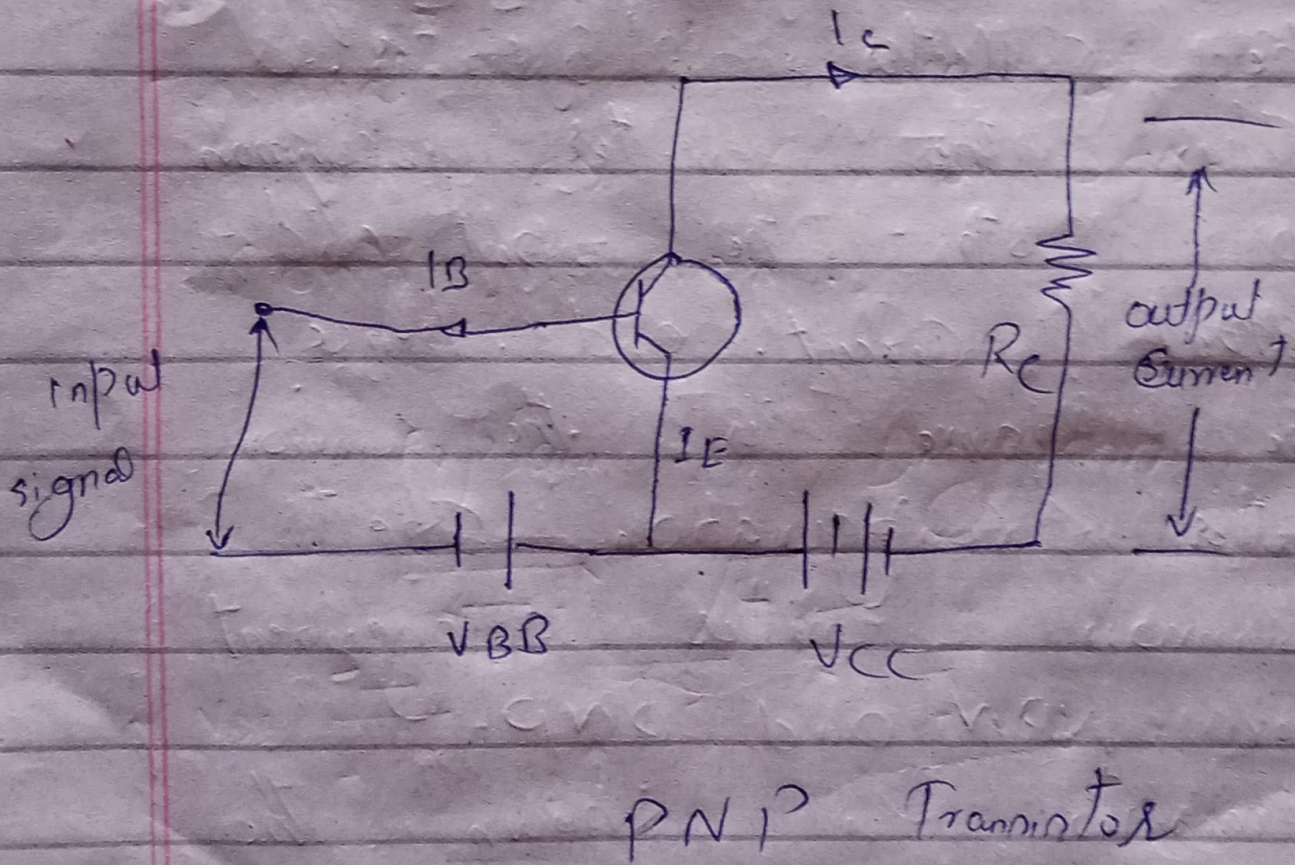 Ic
IB
input
signal
RC
output
current
IE
VBB
VCC
PNP Transistor